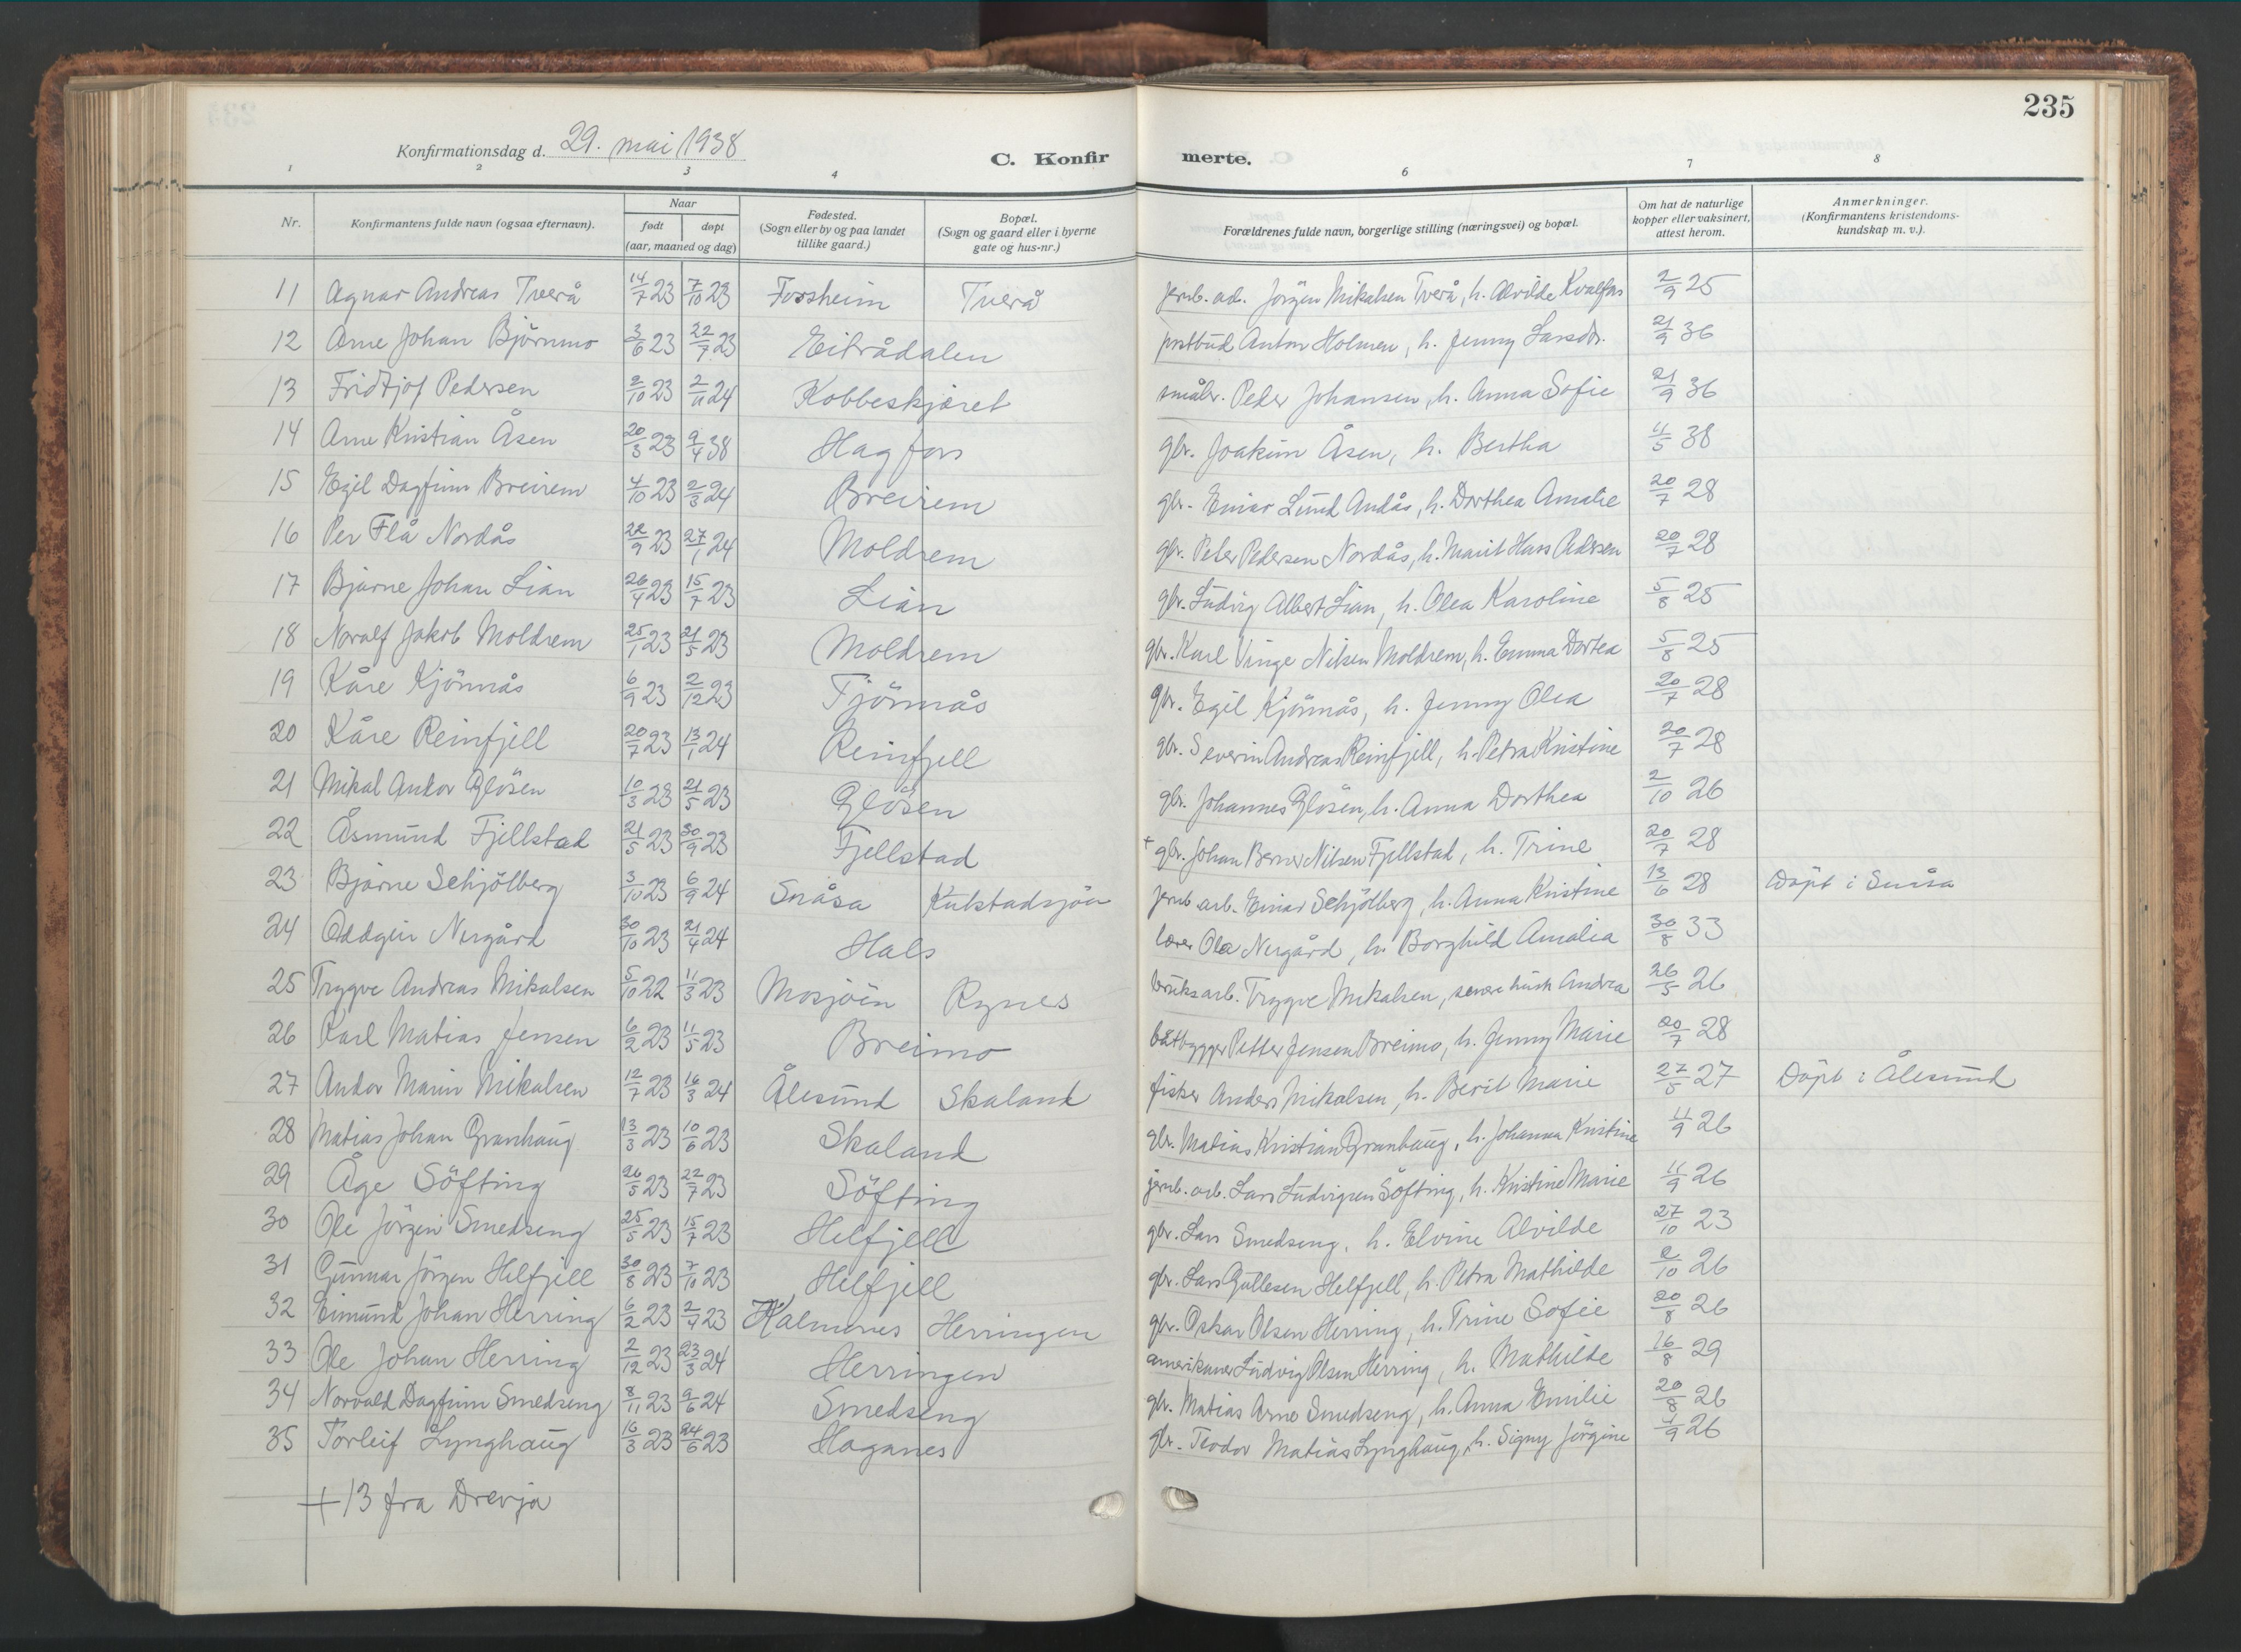 235
Konfirmationsdag d. 29. mai 1938
C. Konfir merte.
1 2 3 4 6 7 8
Nr. Konfirmantens fulde navn (ogsaa efternavn). Naar født døpt (aar, maaned og dag) Fødested. (Sogn eller by og paa landet tillike gaard.) Bopæl. (Sogn og gaard eller i byerne gate og hus-nr.) Forældrenes fulde navn, borgerlige stilling (næringsvei) og bopæl. Om hat de naturlige kopper eller vaksinert, attest herom. Anmerkninger. (Konfirmantens kristendoms-kundskap m. v.).
11 Agnar Andreas Tverå 14/7 23 7/10 23 Forsheim Tverå jernb. arb. Jörgen Mikalsen Tverå, h. Alvilde 2/9 25
12 Arne Johan Björnmo 3/6 23 22/7 23 Eiterådalen postbud Anton Holmen, h. Jenny Larsdtr. 21/9 36
13 Fridtjof Pedersen 2/10 23 2/11 24 Kobbeskjæret småbr. Peder Johansen, h. Anna Sofie 21/9 36
14 Arne Kristian Åsen 20/3 23 9/4 38 Hagfors gbr. Joakim Åsen, h. Bertha 11/5 38
15 Egil Dagfinn Breirem 4/10 23 2/3 24 Breirem gbr. Einar Lund Andås, h. Dorthea Amalie 20/7 28
16 Per Flå Nordås 22/9 23 27/1 24 Moldrem gbr. Peter Pedersen Nordås, h. Marit Hans Pedersen 20/7 28
17 Bjarne Johan Lian 26/4 23 15/7 23 Lian gbr. Ludvig Albert Lian, h. Olea Karoline 5/8 25
18 Noralf Jakob Moldrem 25/1 23 21/5 23 Moldrem gbr. Karl Vinge Nilsen Moldrem, h. Emma Dortea 5/8 25
19 Kåre Kjönnås 6/9 23 2/12 23 Tjönnås gbr. Egil Kjönnås, h. Jenny Olea 20/7 28
20 Kåre Reinfjell 20/7 23 13/1 24 Reinfjell gbr. Severin Andreas Reinfjell, h. Petra Kristine 20/7 28
21 Mikal Andor Glösen 10/3 23 21/5 23 Glösen gbr. Johannes Glösen, h. Anna Dorthea 2/10 26
22 Åsmund Fjellstad 21/5 23 30/9 23 Fjellstad + gbr. Johan Berner Nilsen Fjellstad, h. Trine 20/7 28
23 Bjarne Schjölberg 3/10 23 6/9 24 Snåsa Kulstadsjöen jernb. arb. Einar Schjölberg, h. Anna Kristine 13/6 28 Döpt i Snåsa
24 Oddgeir Nergård 30/10 23 21/4 24 Hals lærer Ola Nergård, h. Borghild Amalia 30/8 33
25 Trygve Andreas Mikalsen 5/10 22 11/3 23 Mosjöen Rynes bruksarb. Trygve Mikalsen, senere hustr. Andrea 26/5 26
26 Karl Matias Jensen 6/2 23 11/5 23 Breimo båtbygger Petter Jensen Breimo, h. Jenny Marie 20/7 28
27 Andor Marin Mikalsen 12/7 23 16/3 24 Ålesund Skaland fisker Anders Mikalsen, h. Berit Marie 27/5 27 Döpt i Ålesund
28 Matias Johan Granhaug 13/3 23 10/6 23 Skaland gbr. Matias Kristian Granhaug, h. Johanna Kristine 11/9 26
29 Åge Söfting 26/5 23 22/7 23 Söfting jernb. arb. Lars Ludvigsen Söfting, h. Kristine Marie 11/9 26
30 Ole Jörgen Smedseng 25/5 23 15/7 23 Helfjell gbr. Lars Smedseng, h. Elvine Alvilde 27/10 23
31 Gunnar Jörgen Helfjell 30/8 23 7/10 23 Helfjell gbr. Lars Gullesen Helfjell, h. Petra Mathilde 2/10 26
32 Eimund Johan Herring 6/2 23 2/4 23 Kalmenes Herringen gbr. Oskar Olsen Herring, h. Trine Sofie 20/8 26
33 Ole Johan Herring 2/12 23 23/3 24 Herringen amerikaner Ludvig Olsen Herring, h. Mathilde 16/8 29
34 Norvald Dagfinn Smedseng 8/11 23 9/6 24 Smedseng gbr. Matias Arne Smedseng, h. Anna Emilie 20/8 26
35 Torleif Lynghaug 16/3 23 24/6 23 Haganes gbr. Teodor Matias Lynghaug, h. Signy Jörgine 4/9 26
+ 13 fra Drevja